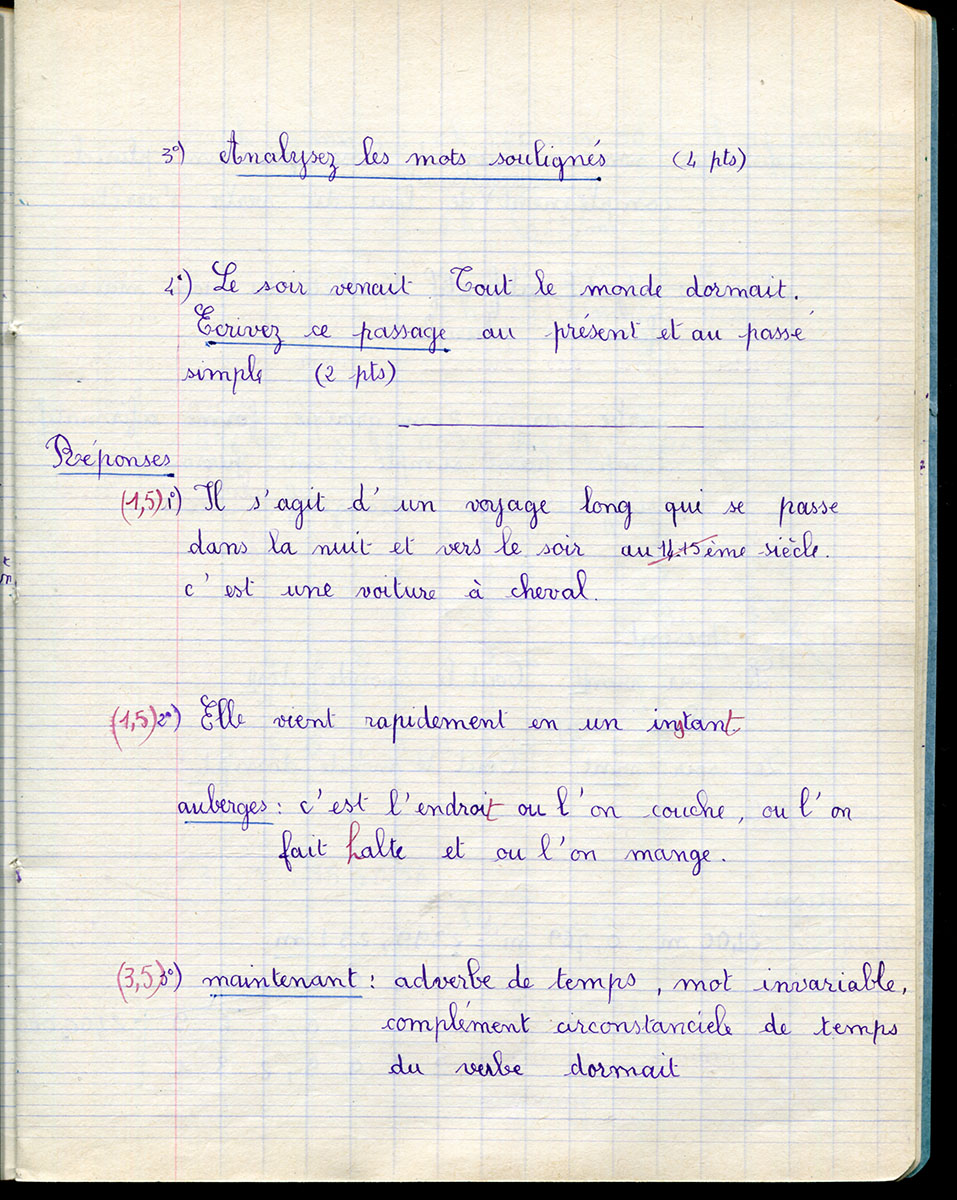 3°) Analysez les mots soulignés (4 pts)
4°) Le soir venait. Tout le monde dormait.
Ecrivez ce passage au présent et au passé
simple (2 pts)
Réponses
(1,5) 1°) Il s'agit d'un voyage long qui se passe
dans la nuit et vers le soir au 14.15ème siècle.
c'est une voiture à cheval.
(1,5) 2°) Elle vient rapidement en un instant
auberges : c'est l'endroit ou l'on couche, ou l'on
fait halte et ou l'on mange.
(3,5) 3°) maintenant : adverbe de temps, mot invariable,
complément circonstanciele de temps
du verbe dormait